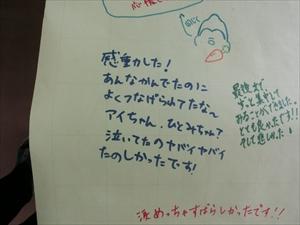 感動した!
あんなかんでたのに
よくつなげられてたな〜
アイちゃん、ひとみちゃん?
泣いてたのヤバイヤバイ
たのしかったです!
最後まで
ずっと集中して
みることができました!
とても良かったです!!
そして悲しかった!
涙めっちゃすばらしかったです!!